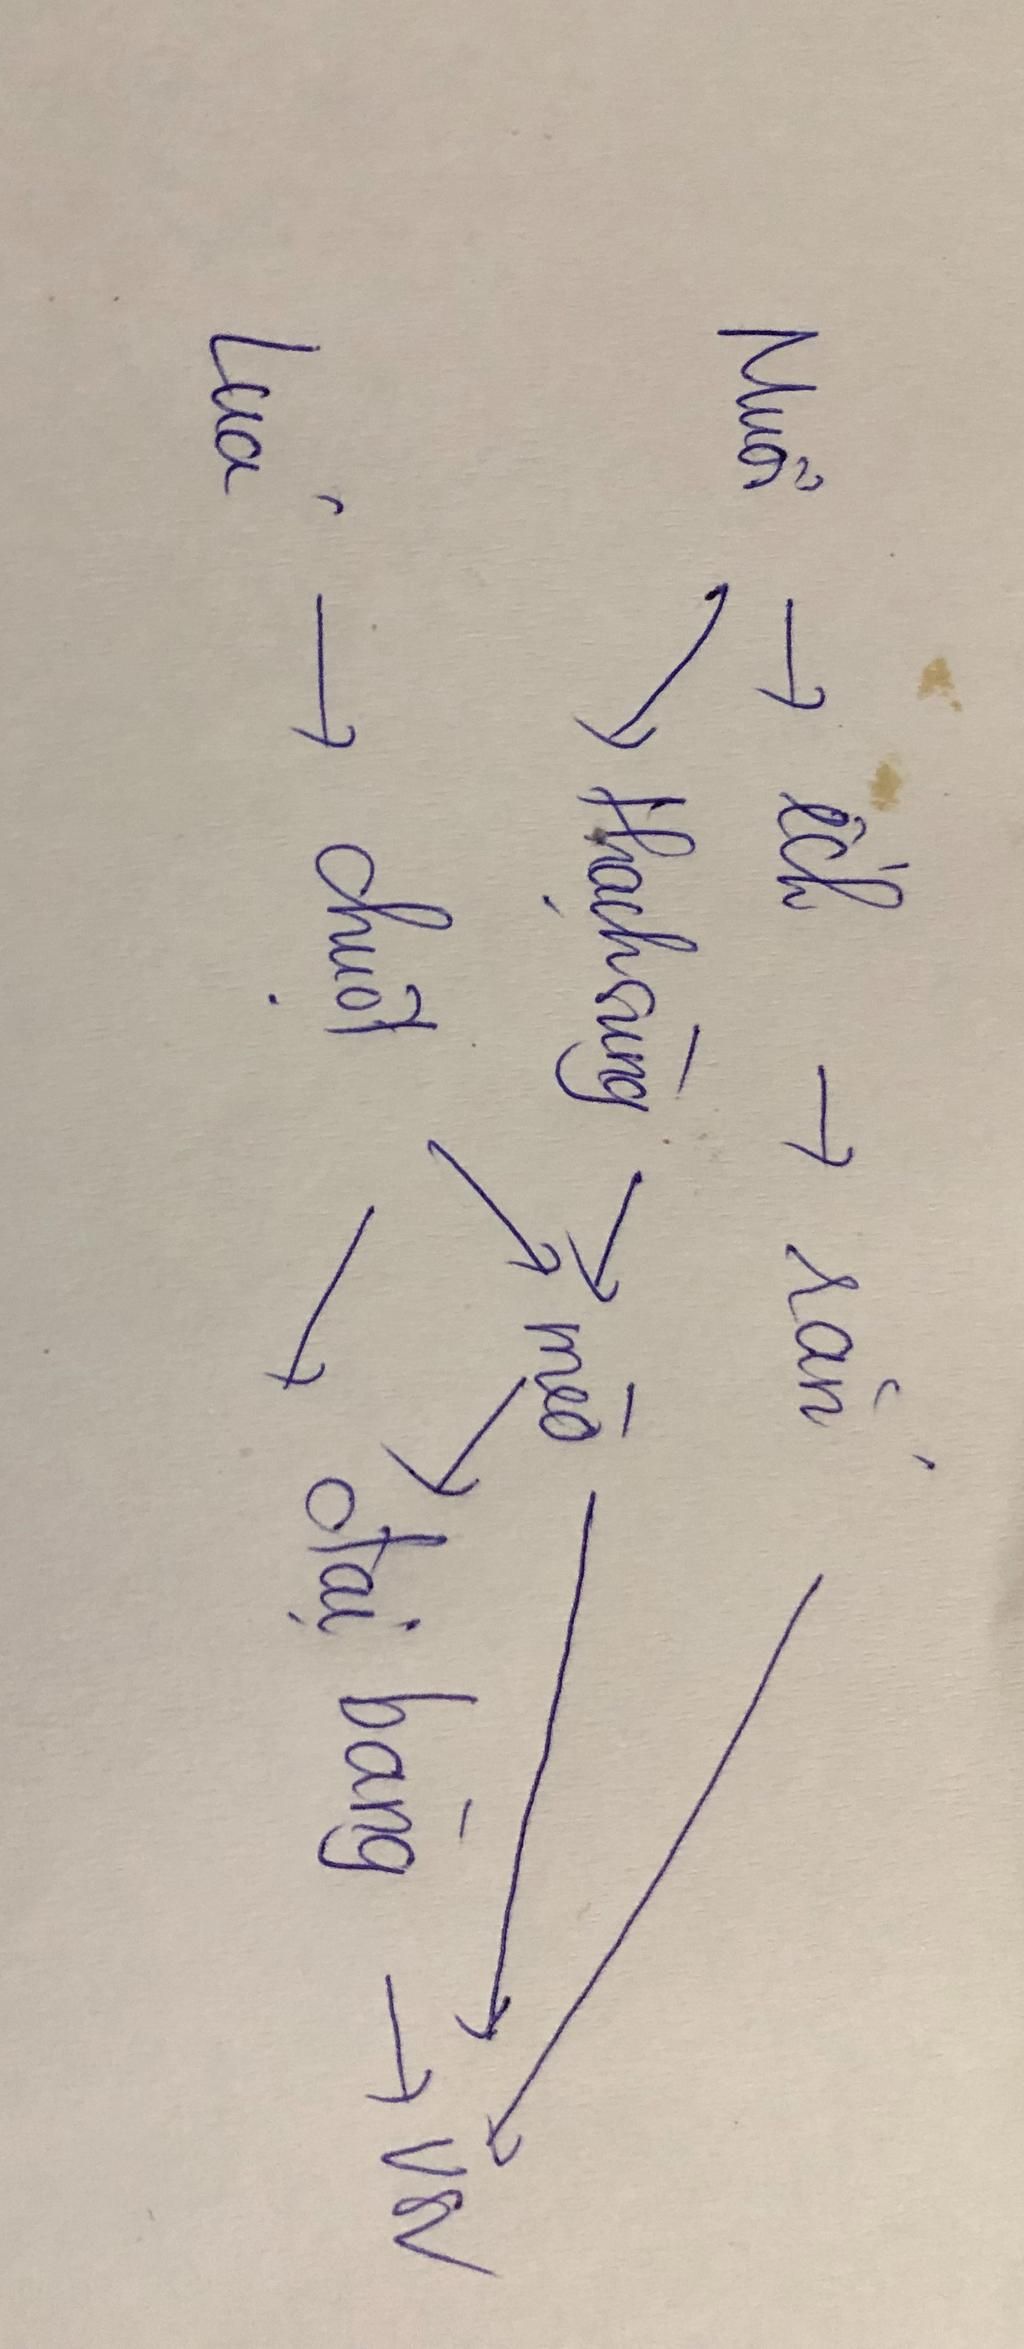 Muỗi → ếch → rắn
→ thạch sùng → mèo
Lúa → chuột → đại bàng → VSV